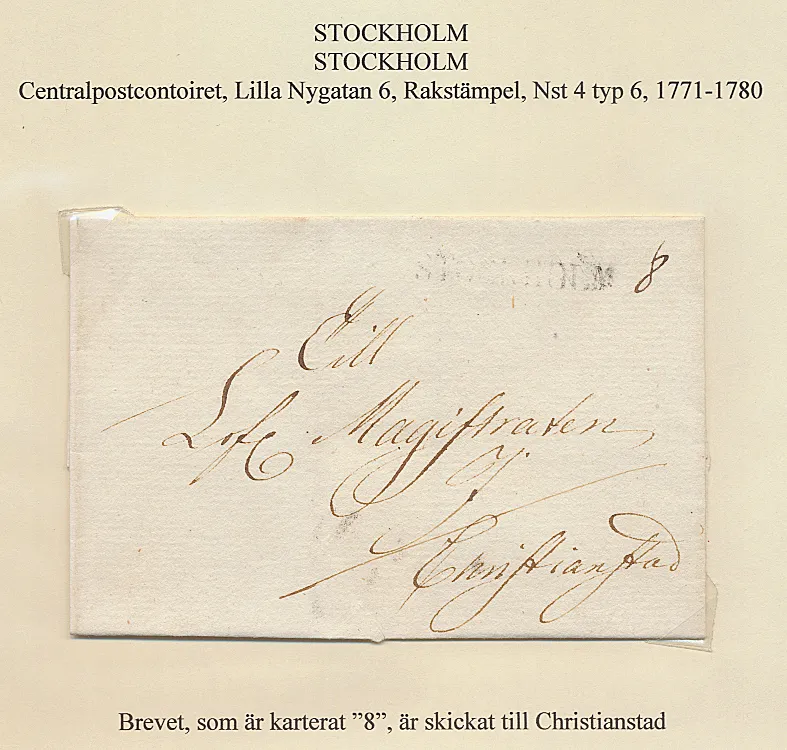 STOCKHOLM
STOCKHOLM
Centralpostcontoiret, Lilla Nygatan 6, Rakstämpel, Nst 4 typ 6, 1771-1780
8
Till
Lofl Magistraten
i
Christianstad
Brevet, som är karterat ”8”, är skickat till Christianstad